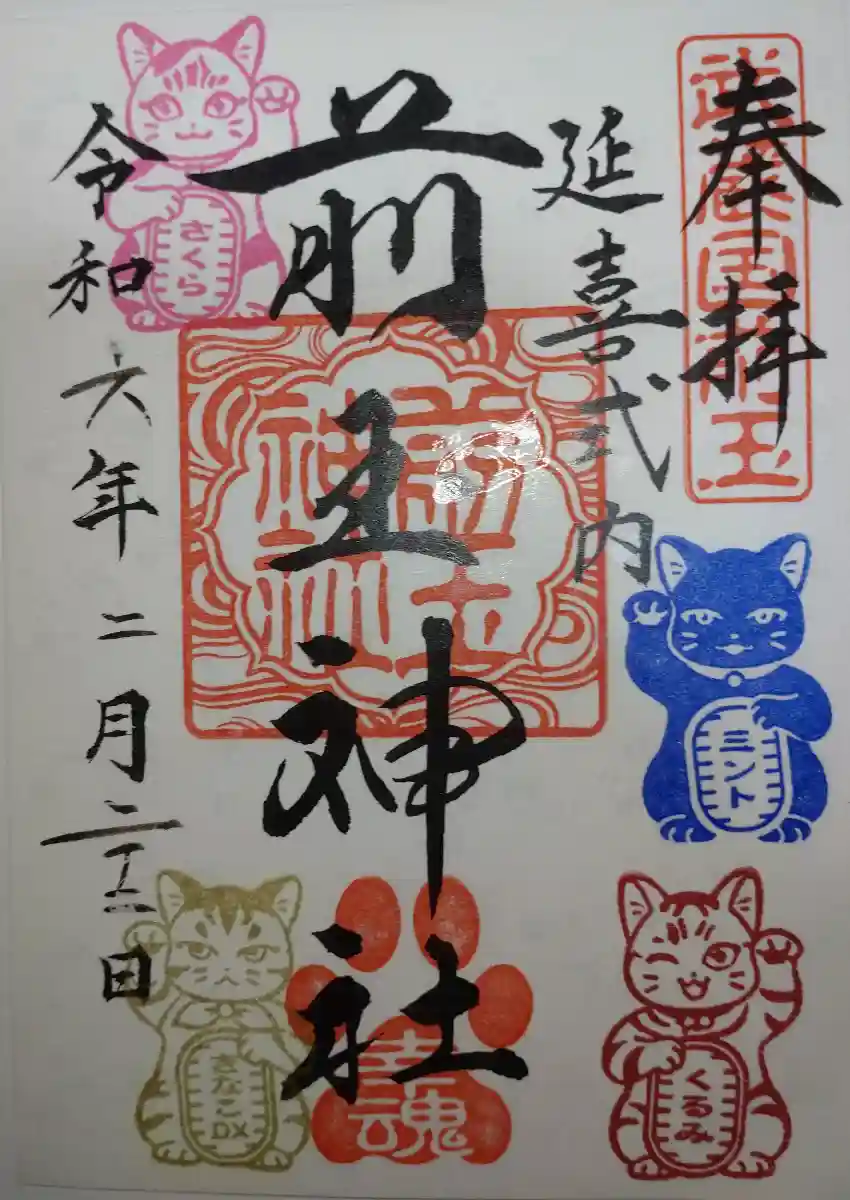 奉拝
武蔵国埼玉
延喜式内
前玉神社
前玉
神社
令和六年二月二十二日
さくら
ミント
きなこ
DX
くるみ
幸
魂